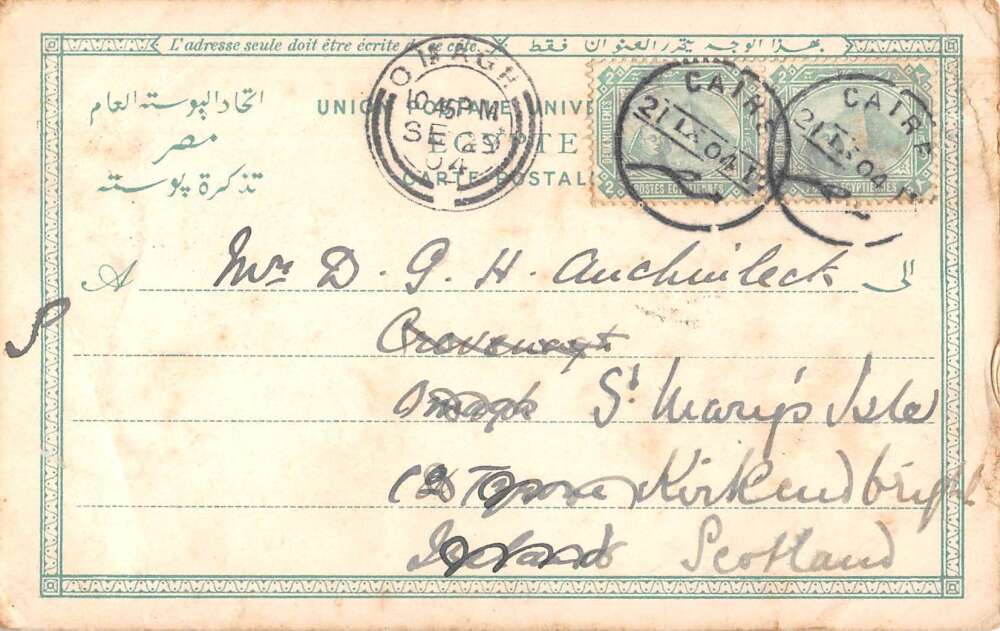 L'adresse seule doit être écrite de ce côté. بهذا الوجه يحرر العنوان فقط
اتحاد البوسته العام
UNION POSTALE UNIVE
مصر
EGYPTE
تذكرة بوسته
CARTE POSTAL
OMAGH
10 45 PM
SE 29
04
CAIRE
21 IX 04
CAIRE
21 IX 04
DEUX MILLIEMES
POSTES EGYPTIENNES
EGYPTIENNES
A Mrs D. G. H. Auchinleck الى
S
Crevenagh
Omagh St Mary's Isle
Co Tyrone Kirkcudbright
Ireland Scotland